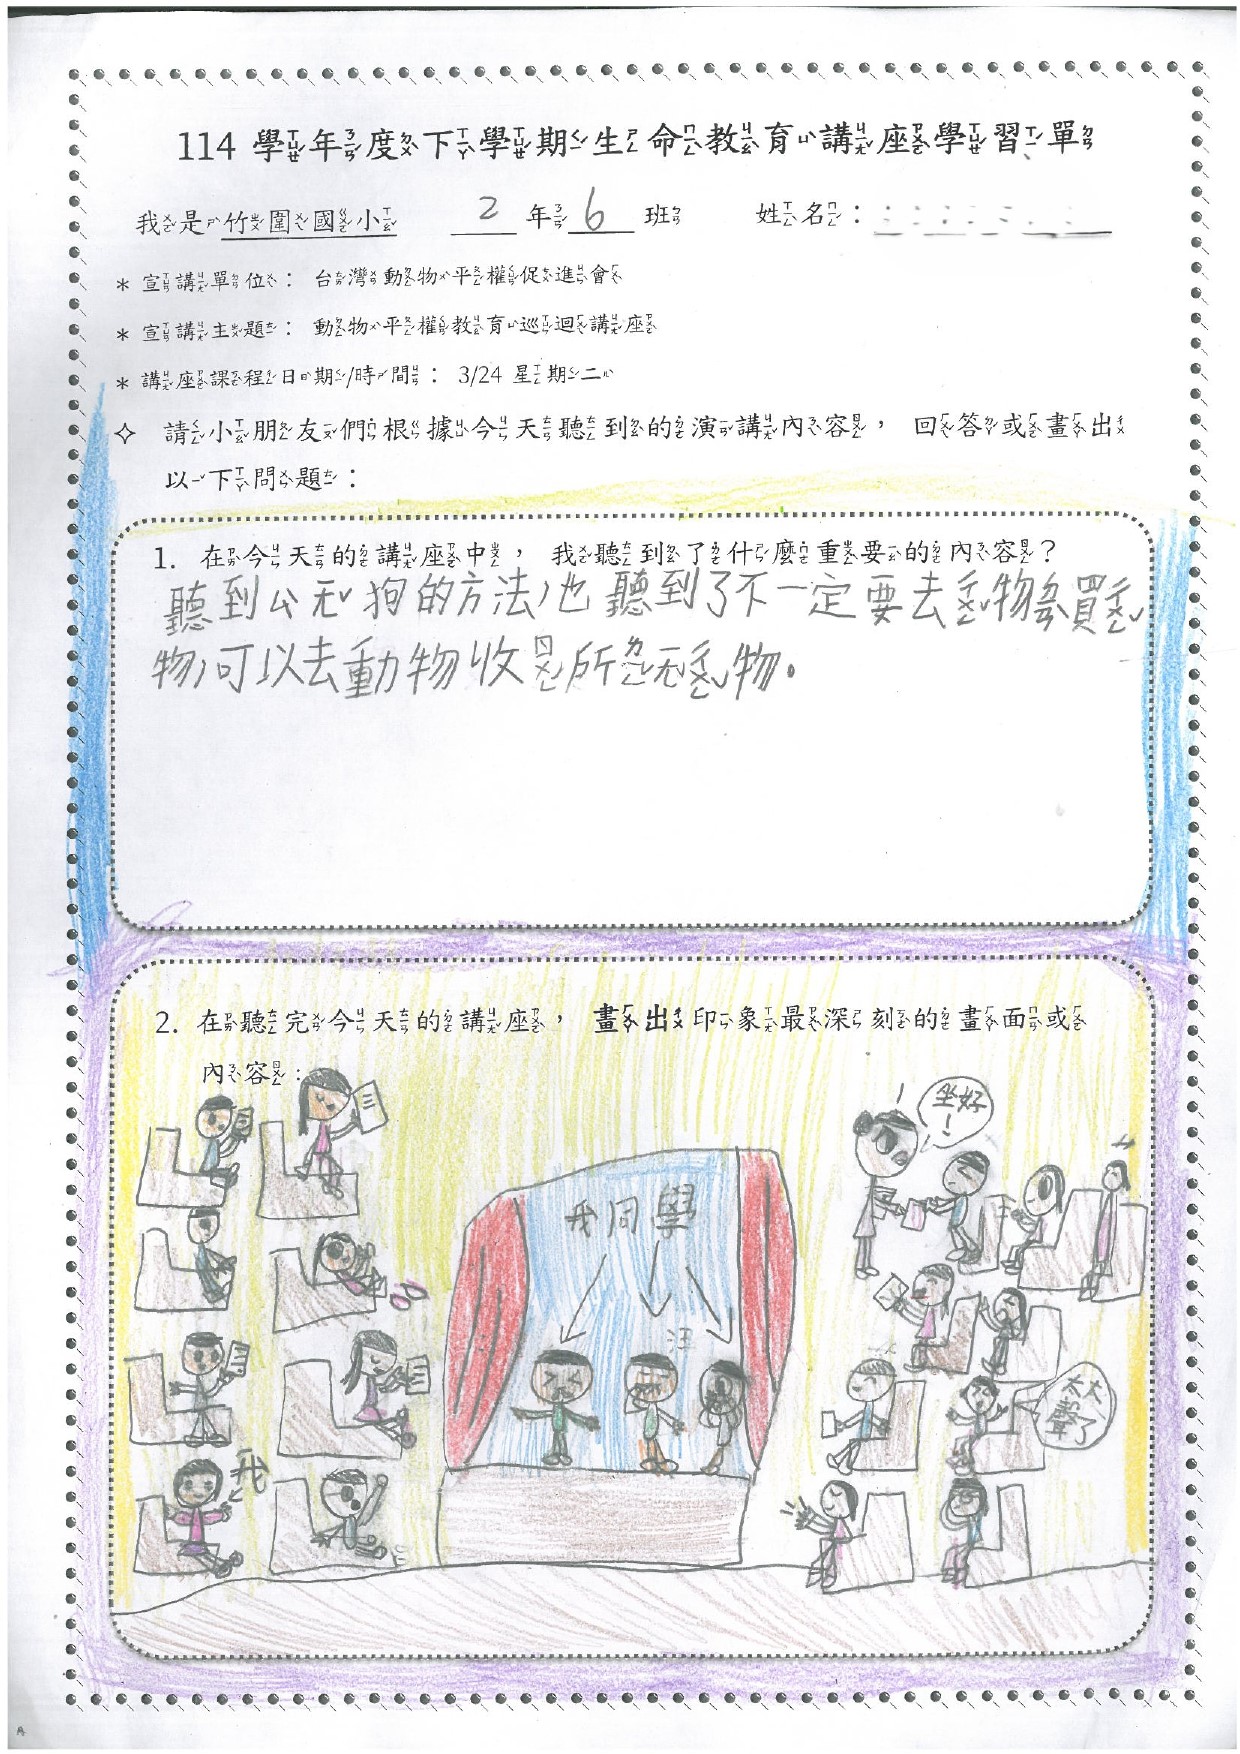 114 學年度下學期生命教育講座學習單
我是竹圍國小 2 年 6 班 姓名：
* 宣講單位： 台灣動物平權促進會
* 宣講主題： 動物平權教育巡迴講座
* 講座課程日期/時間： 3/24 星期二
✧ 請小朋友們根據今天聽到的演講內容， 回答或畫出
以下問題：
1. 在今天的講座中， 我聽到了什麼重要的內容？
聽到公ㄩㄤˇ狗的方法,也聽到了不一定要去ㄔㄨㄥˇ物ㄉㄧㄢˋ買ㄔㄨㄥˇ
物,可以去動物收ㄖㄨㄥˊ所ㄌㄧㄥˇㄩㄤˇㄔㄨㄥˇ物。
2. 在聽完今天的講座， 畫出印象最深刻的畫面或
內容：
坐好！
我同學
汪
太大聲了
我